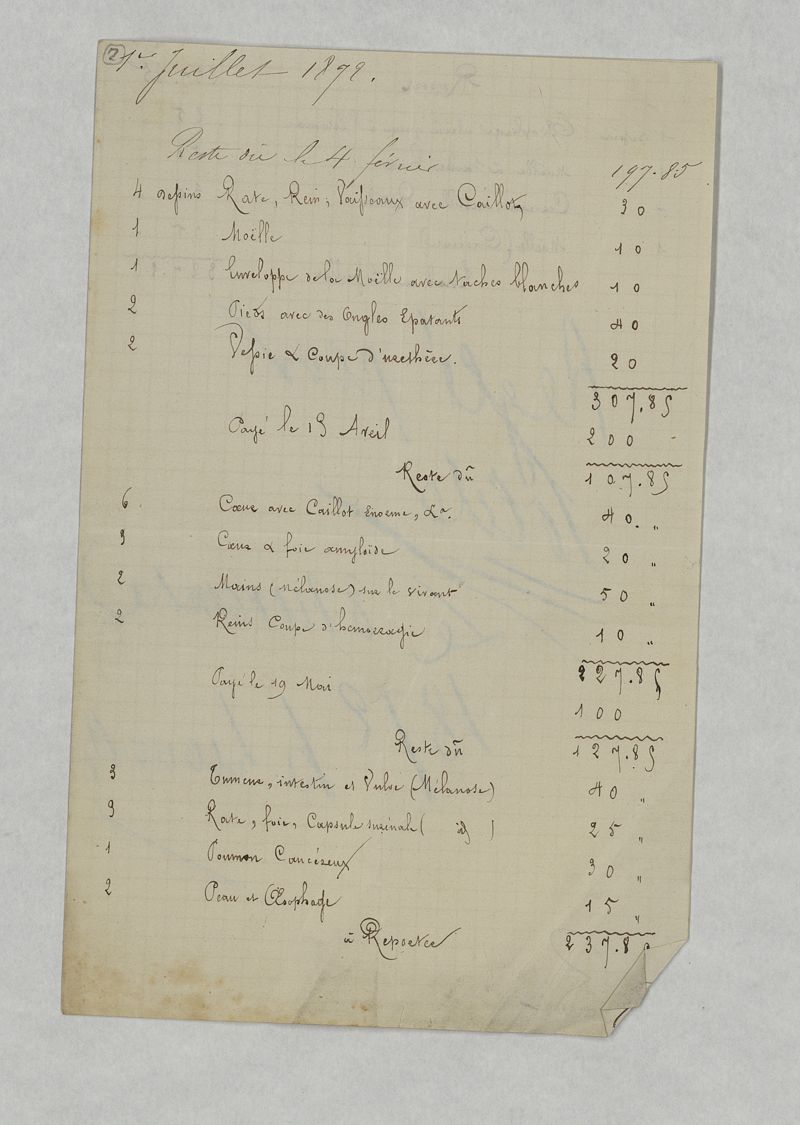 2
1er Juillet 1892.
Reste dû le 4 février 197.85
4 dessins Rate, Rein, Vaisseaux avec Caillots 30
1 Moëlle 10
1 Enveloppe de la Moëlle avec taches blanches 10
2 Pieds avec des Ongles Epatants 40
2 Vessie & Coupe d'urethère. 20
307.85
Payé le 13 Avril 200
Reste dû 107.85
6 Cœur avec Caillot enorme, &a. 40. "
3 Cœur & foie amyloïde 20 "
2 Mains (Mélanose) sur le vivant 50 "
2 Reins Coupe d'hemorragie 10 "
227.85
Payé le 19 Mai 100
Reste dû 127.85
3 Tumeur, intestin et Vulve (Mélanose) 40 "
3 Rate, foie, Capsule surénale ( id ) 25 "
1 Poumon Cancéreux 30 "
2 Peau et Œsophage 15 "
à Reporter 237.85